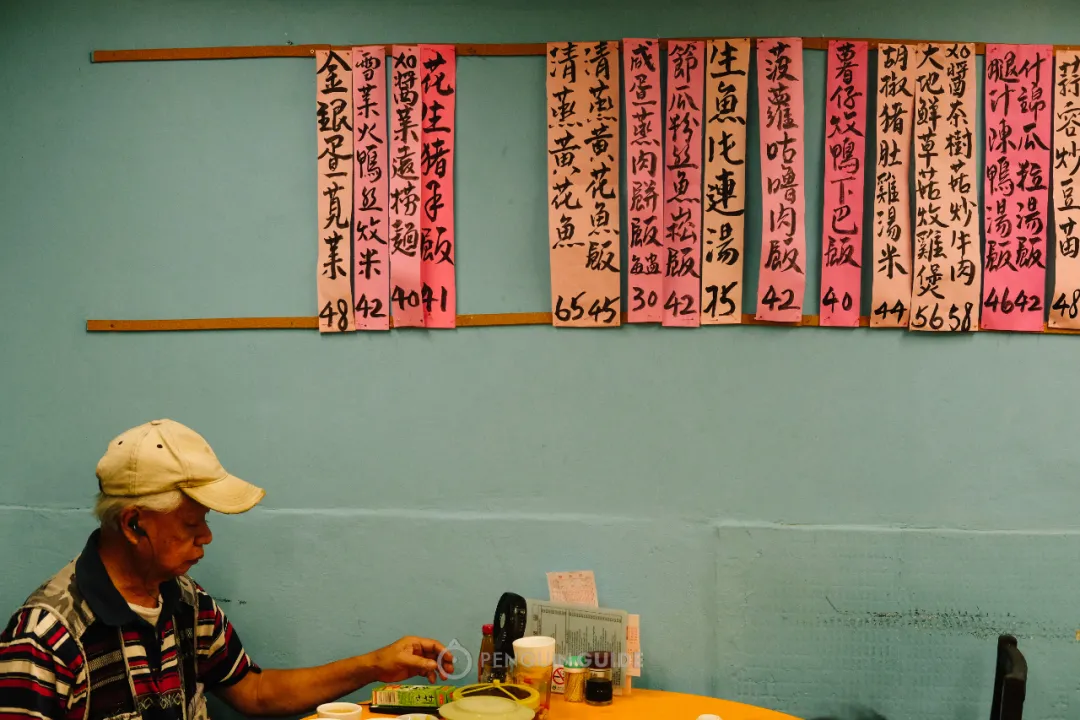 金銀蛋莧菜 48
雪菜火鴨絲炆米 42
XO醬菜遠撈麵 40
花生猪手飯 41
清蒸黃花魚 65
清蒸黃花魚飯 45
咸蛋蒸肉餅飯 30
節瓜粉丝魚崧飯 42
生魚化連湯 75
菠蘿咕嚕肉飯 42
薯仔炆鴨下巴飯 40
胡椒猪肚雞湯米 44
大地鮮草菇炆雞煲 56
XO醬茶樹菇炒牛肉 58
腿汁陳鴨湯飯 46
什錦瓜粒湯飯 42
蒜容炒豆苗 48
PENGUIN GUIDE